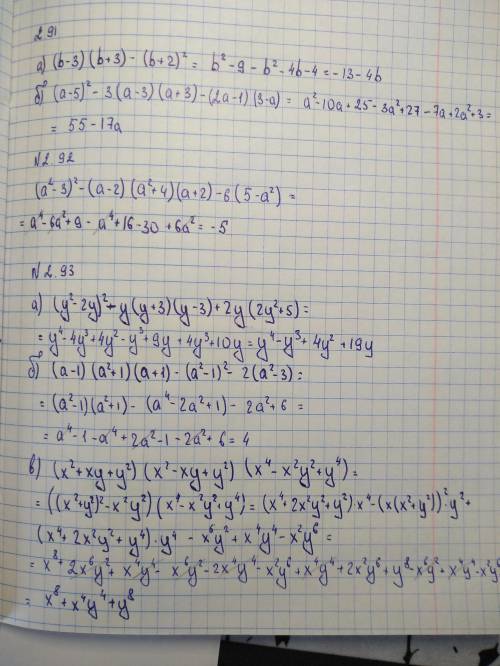 2.91
а) (b-3)(b+3) - (b+2)² = b² - 9 - b² - 4b - 4 = -13 - 4b
б) (a-5)² - 3(a-3)(a+3) - (2a-1)(3-a) = a² - 10a + 25 - 3a² + 27 - 7a + 2a² + 3 =
= 55 - 17a
N2.92
(a² - 3)² - (a-2)(a²+4)(a+2) - 6(5-a²) =
= a⁴ - 6a² + 9 - a⁴ + 16 - 30 + 6a² = -5
N2.93
а) (y² - 2y)² - y(y+3)(y-3) + 2y(2y²+5) =
= y⁴ - 4y³ + 4y² - y³ + 9y + 4y³ + 10y = y⁴ - y³ + 4y² + 19y
б) (a-1)(a²+1)(a+1) - (a²-1)² - 2(a²-3) =
= (a²-1)(a²+1) - (a⁴ - 2a² + 1) - 2a² + 6 =
= a⁴ - 1 - a⁴ + 2a² - 1 - 2a² + 6 = 4
в) (x² + xy + y²)(x² - xy + y²)(x⁴ - x²y² + y⁴) =
= ((x²+y²)² - x²y²)(x⁴ - x²y² + y⁴) = (x⁴ + 2x²y² + y²) · x⁴ - (x(x²+y²))² · y² +
(x⁴ + 2x²y² + y⁴) · y⁴ - x⁶y² + x⁴y⁴ - x²y⁶ =
= x⁸ + 2x⁶y² + x⁴y⁴ - x⁶y² - 2x⁴y⁴ - x²y⁶ + x⁴y⁴ + 2x²y⁶ + y⁸ - x⁶y² + x⁴y⁴ - x²y⁶
= x⁸ + x⁴y⁴ + y⁸